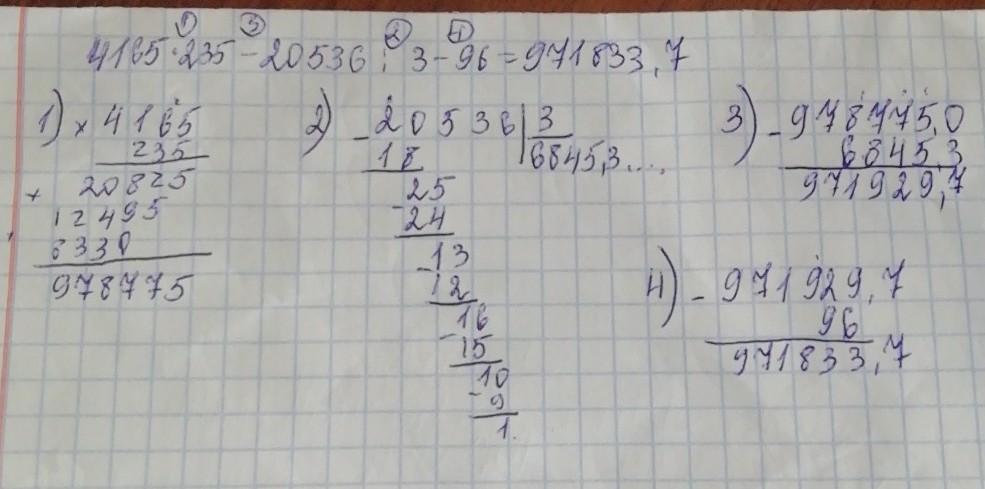 ① ③ ② ④
4165·235-20536:3-96=971833,7
1) × 4165
235
+ 20825
12495
8330
978775
2) - 20536 | 3
18 6845,3....
- 25
24
- 13
12
- 16
15
- 10
9
1.
3) - 978775,0
6845,3
971929,7
4) - 971929,7
96
971833,7